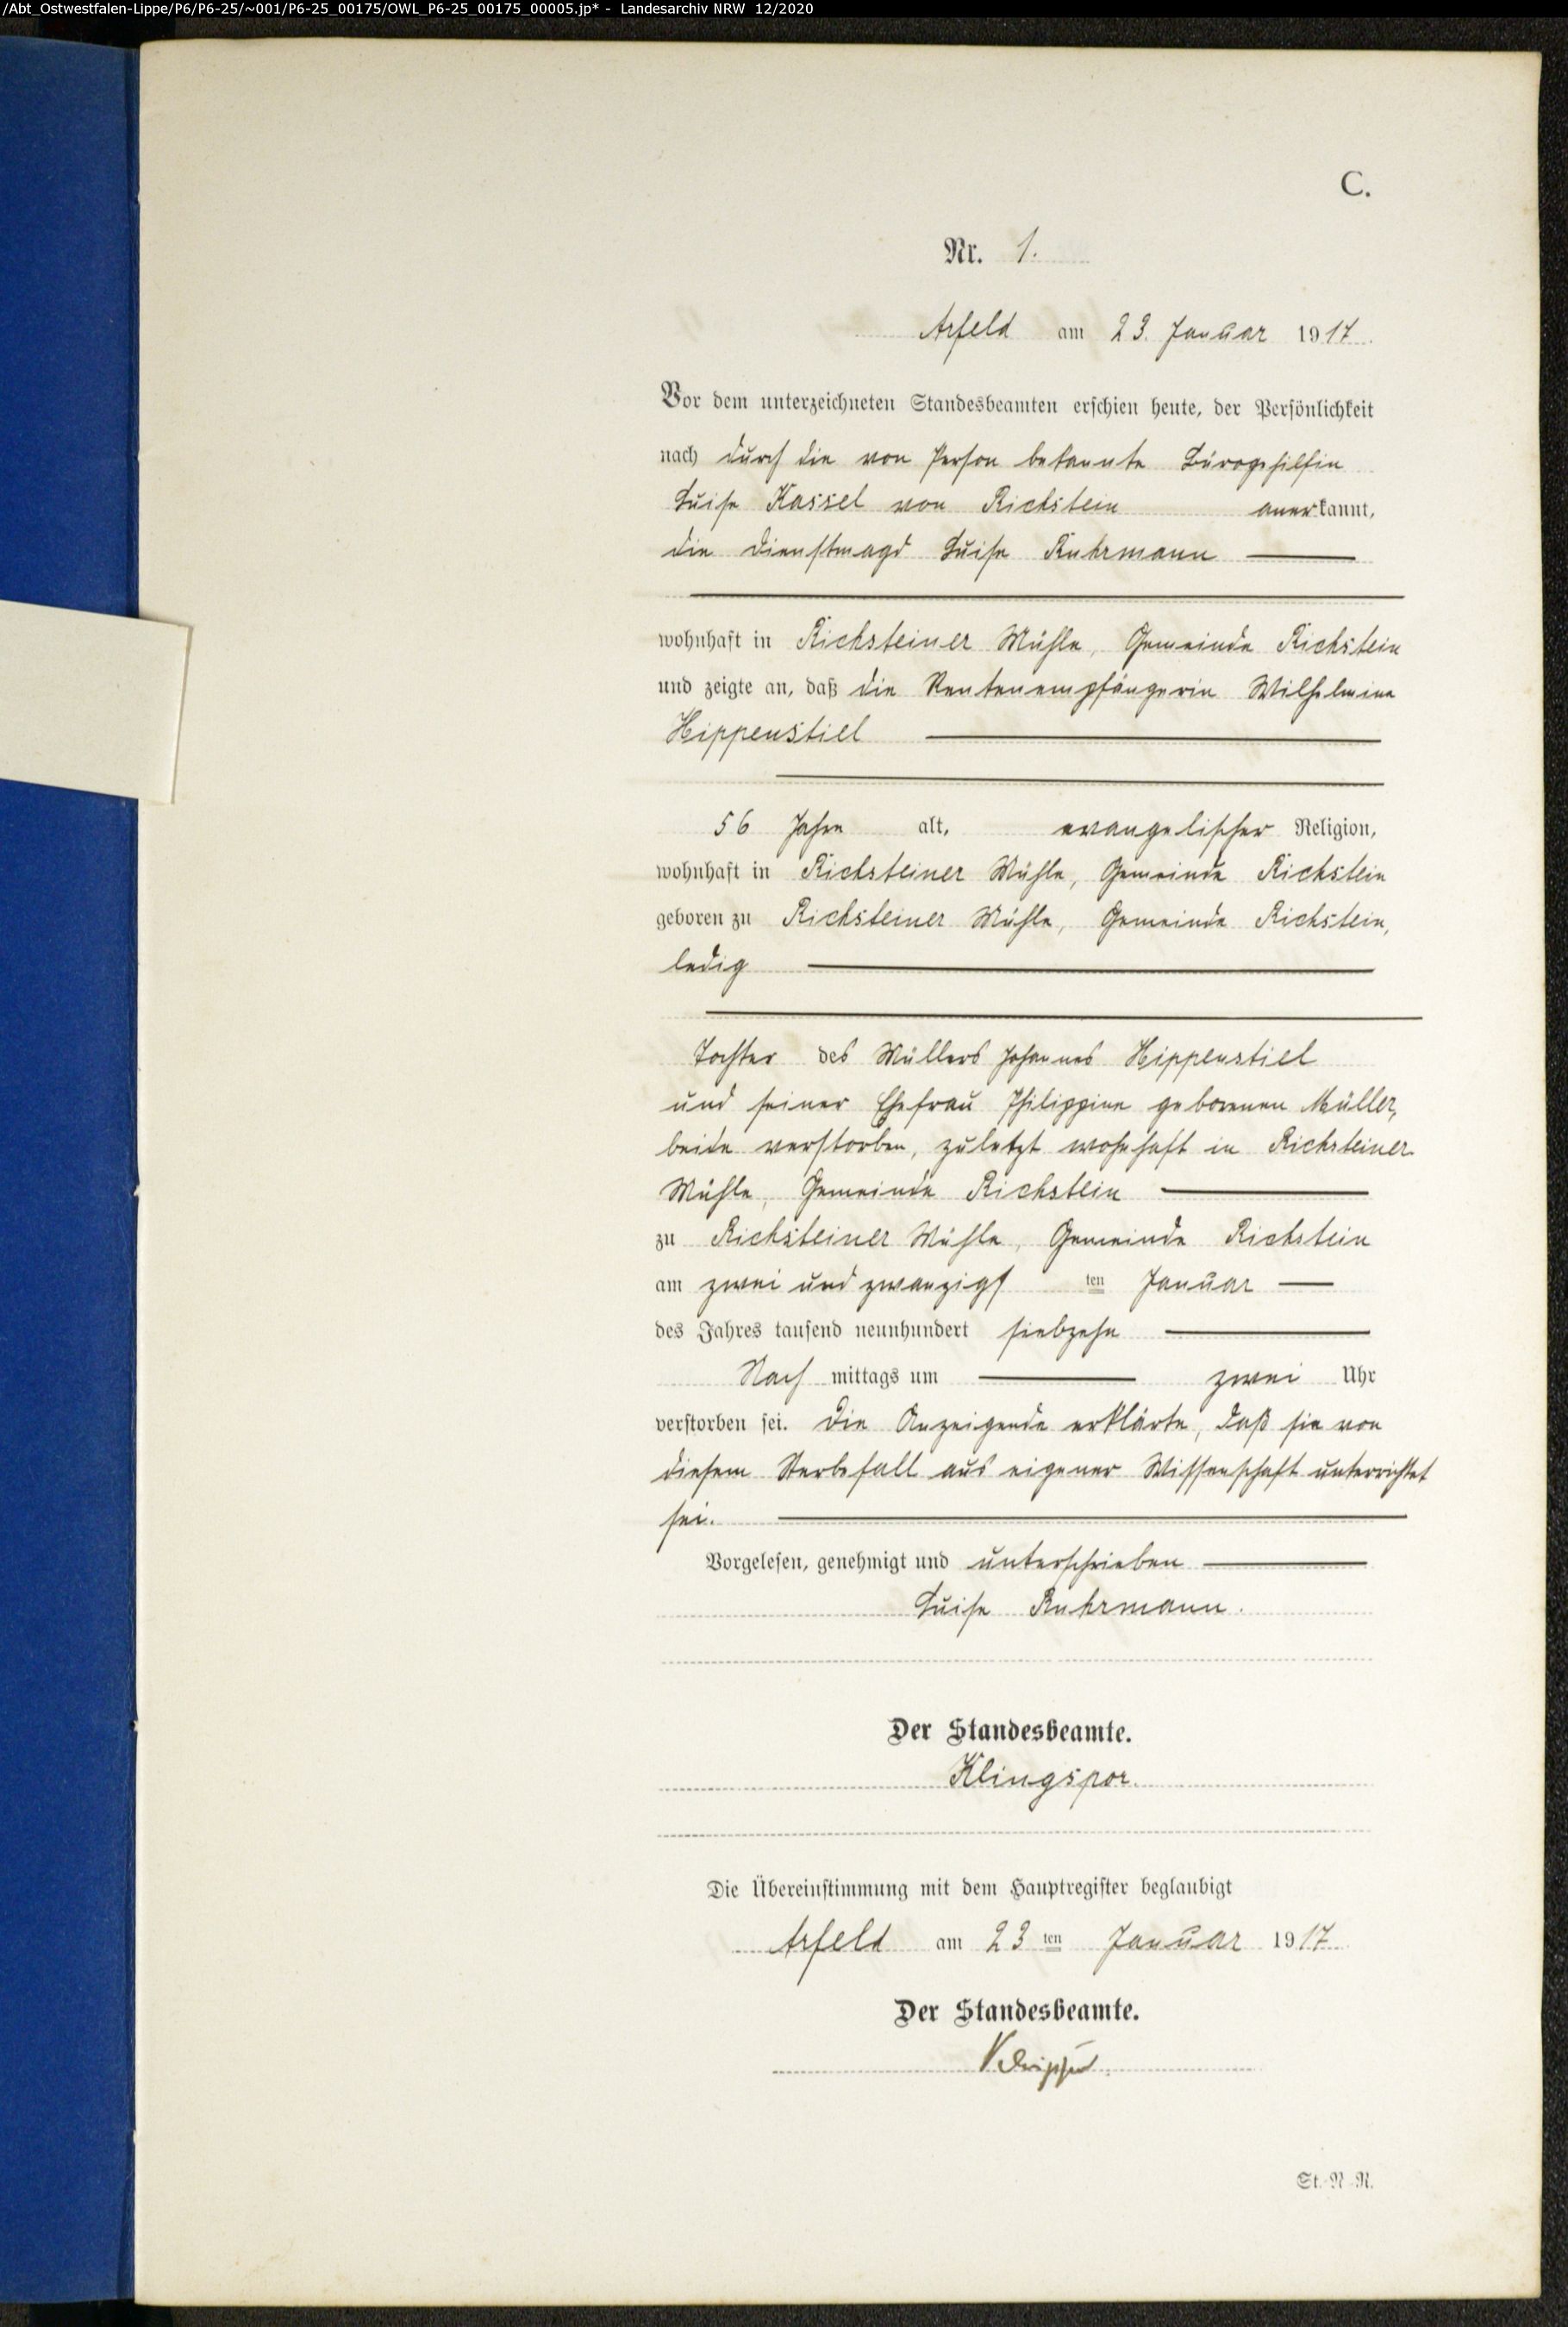 /Abt_Ostwestfalen-Lippe/P6/P6-25/~001/P6-25_00175/OWL_P6-25_00175_00005.jp* - Landesarchiv NRW 12/2020
C.
Nr. 1.
Arfeld am 23. Januar 1917.
Vor dem unterzeichneten Standesbeamten erschien heute, der Persönlichkeit
nach durch die von Person bekannte Bürogehilfin
Luise Kassel von Richstein anerkannt,
die Dienstmagd Luise Ruhrmann
wohnhaft in Richsteiner Mühle, Gemeinde Richstein
und zeigte an, daß die Rentenempfängerin Wilhelmine
Hippenstiel
56 Jahre alt, evangelischer Religion,
wohnhaft in Richsteiner Mühle, Gemeinde Richstein
geboren zu Richsteiner Mühle, Gemeinde Richstein,
ledig
Tochter des Müllers Johannes Hippenstiel
und seiner Ehefrau Philippine geborenen Müller,
beide verstorben, zuletzt wohnhaft in Richsteiner
Mühle, Gemeinde Richstein
zu Richsteiner Mühle, Gemeinde Richstein
am zwei und zwanzigsten Januar
des Jahres tausend neunhundert siebzehn
Nachmittags um zwei Uhr
verstorben sei. Die Anzeigende erklärte, daß sie von
diesem Sterbefall aus eigener Wissenschaft unterrichtet
sei.
Vorgelesen, genehmigt und unterschrieben
Luise Ruhrmann.
Der Standesbeamte.
Klingspor.
Die Übereinstimmung mit dem Hauptregister beglaubigt
Arfeld am 23ten Januar 1917
Der Standesbeamte.
St.-N-R.